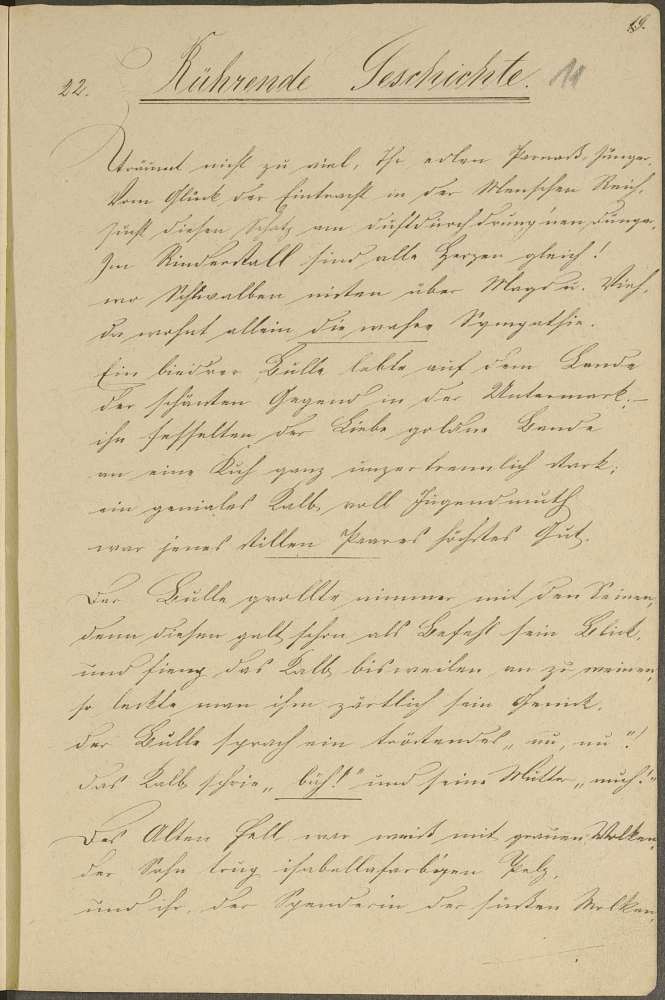 19.
22. Rührende Geschichte. 11
Träumt nicht zu viel, Ihr edlen Parnaß-Jünger,
Vom Glück der Eintracht in der Menschen Reich,
sucht diesen Schatz am duftdurchdrung'nen Dünger,
Im Rinderstall sind alle Herzen gleich!
wo Schwalben nisten über Magd u. Vieh,
da wohnt allein die wahre Sympathie.
Ein biedrer Bulle lebte auf dem Lande
der schönsten Gegend in der Untermark; –
ihn fesselten der Liebe goldne Bande
an eine Kuh ganz unzertrennlich stark;
ein geniales Kalb voll Jugendmuth
war jenes stillen Paares höchstes Gut.
Der Bulle grollte nimmer mit den Seinen,
denn diesen galt schon als Befehl sein Blick,
und fieng das Kalb bisweilen an zu weinen,
so leckte man ihm zärtlich sein Genick,
der Bulle sprach ein tröstendes „nu, nu"!
das Kalb schrie „bäh!" und seine Mutter „muh!"
Des Alten Fell war weiß mit grauen Wolken,
der Sohn trug isabellafarbigen Pelz,
und ihr, der Spenderin der süßen Molken,